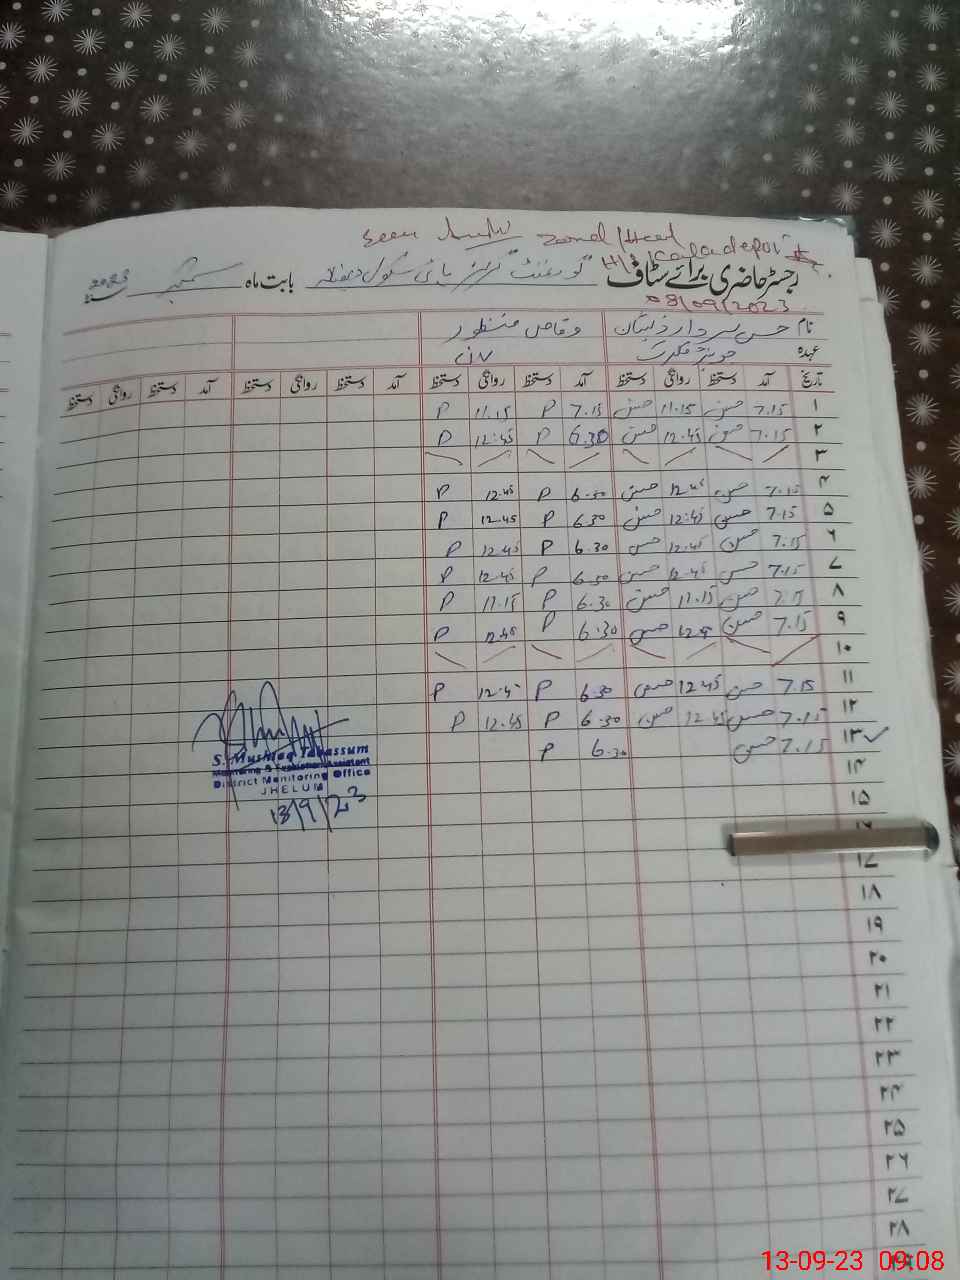 Seen Zonal Head
H/S Kaladepot
رجسٹر حاضری برائے سٹاف گورنمنٹ گرلز ہائی سکول بابت ماہ ستمبر 2023
08/09/2023
نام حسن سردار وقاص منظور
عہدہ جونیئر کلرک
تاریخ آمد دستخط روانگی دستخط آمد دستخط روانگی دستخط آمد دستخط روانگی دستخط آمد دستخط روانگی دستخط
۱ 7.15 حسن 11.15 حسن 7.15 P 11.15 P
۲ 7.15 حسن 12.45 حسن 6.30 P 12:45 P
۳
۴ 7.15 حسن 12.45 حسن 6.30 P 12.45 P
۵ 7.15 حسن 12:45 حسن 6.30 P 12.45 P
۶ 7.15 حسن 12.45 حسن 6.30 P 12.45 P
۷ 7.15 حسن 12.45 حسن 6.30 P 12.45 P
۸ 7.15 حسن 11.15 حسن 6.30 P 11.15 P
۹ 7.15 حسن 12.45 حسن 6.30 P 12.45 P
۱۰
۱۱ 7.15 حسن 12.45 حسن 6.30 P 12.45 P
۱۲ 7.15 حسن 12.45 حسن 6.30 P 12.45 P
۱۳ 7.15 حسن 6.30 P
۱۴
S. Mushtaq Tabassum
Monitoring & Evaluation Assistant
District Monitoring Office
JHELUM
13/9/23
۱۵
۱۶
۱۷
۱۸
۱۹
۲۰
۲۱
۲۲
۲۳
۲۴
۲۵
۲۶
۲۷
۲۸
۲۹
13-09-23 09:08